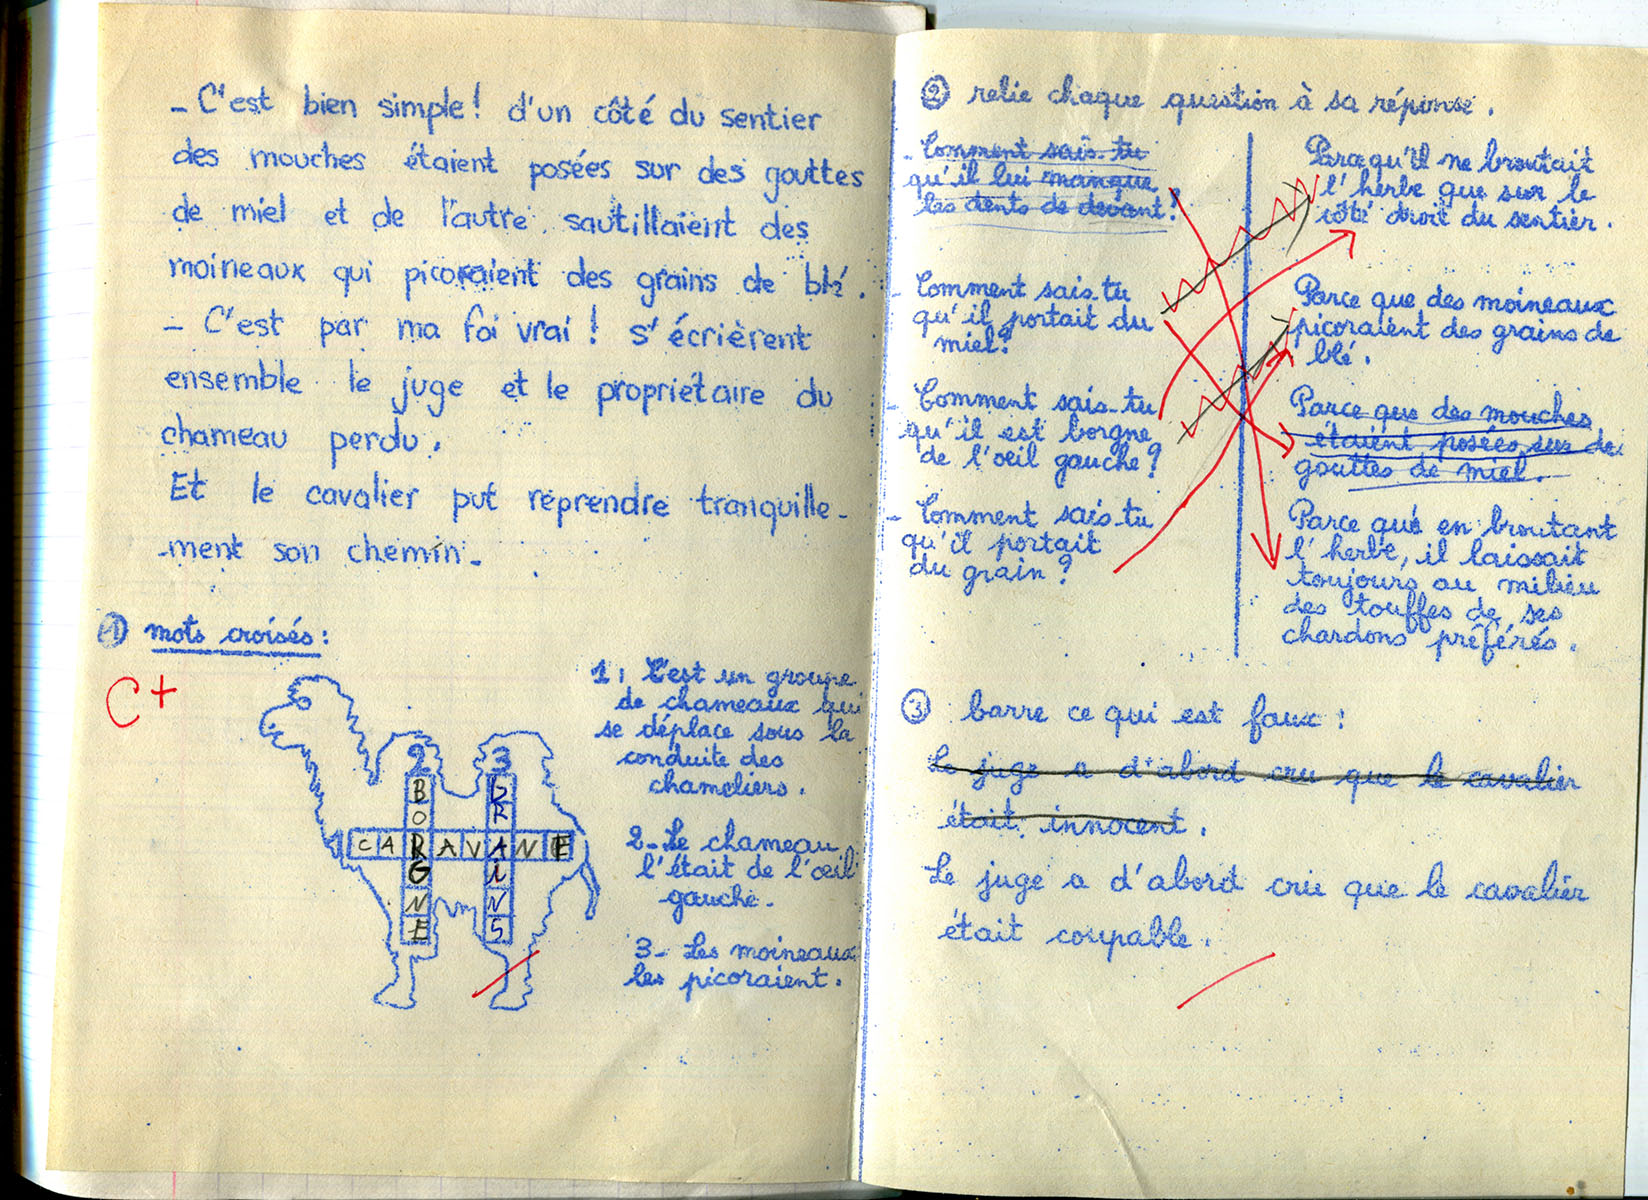 - C'est bien simple! d'un côté du sentier
des mouches étaient posées sur des gouttes
de miel et de l'autre sautillaient des
moineaux qui picoraient des grains de blé.
- C'est par ma foi vrai! s'écrièrent
ensemble le juge et le propriétaire du
chameau perdu.
Et le cavalier put reprendre tranquille-
-ment son chemin-
1 mots croisés:
C+
1: C'est un groupe
de chameaux qui
se déplace sous la
conduite des
chameliers.
2- Le chameau
l'était de l'œil
gauche-
3- Les moineaux
les picoraient.
2 3
BORGNE
GRAINS
1 CARAVANE
2 relie chaque question à sa réponse.
- Comment sais-tu
qu'il lui manque
les dents de devant?
- Comment sais-tu
qu'il portait du
miel?
- Comment sais-tu
qu'il est borgne
de l'oeil gauche?
- Comment sais-tu
qu'il portait
du grain?
Parce qu'il ne broutait
l'herbe que sur le
côté droit du sentier.
Parce que des moineaux
picoraient des grains de
blé.
Parce que des mouches
étaient posées sur de
gouttes de miel.
Parce qué en broutant
l'herbe, il laissait
toujours au milieu
des touffes de ses
chardons préférés.
3 barre ce qui est faux:
Le juge a d'abord cru que le cavalier
était innocent.
Le juge a d'abord cru que le cavalier
était coupable.